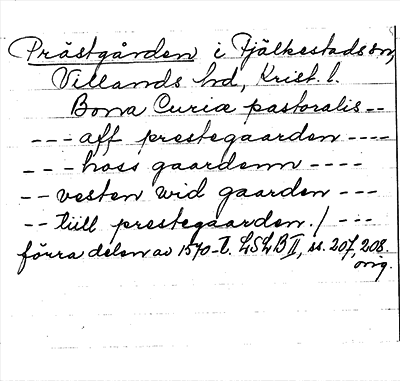 Prästgården i Fjälkestads sn,
Villands hd, Krist. l.
Bona Curiæ pastoralis --
--- aff prestegaarden ----
--- hoss gaardenn ----
-- vesten wid gaarden ---
-- tiill prestegaarden. / ---
förra delen av 1570-t. LSLB II, ss. 207, 208.
orig.